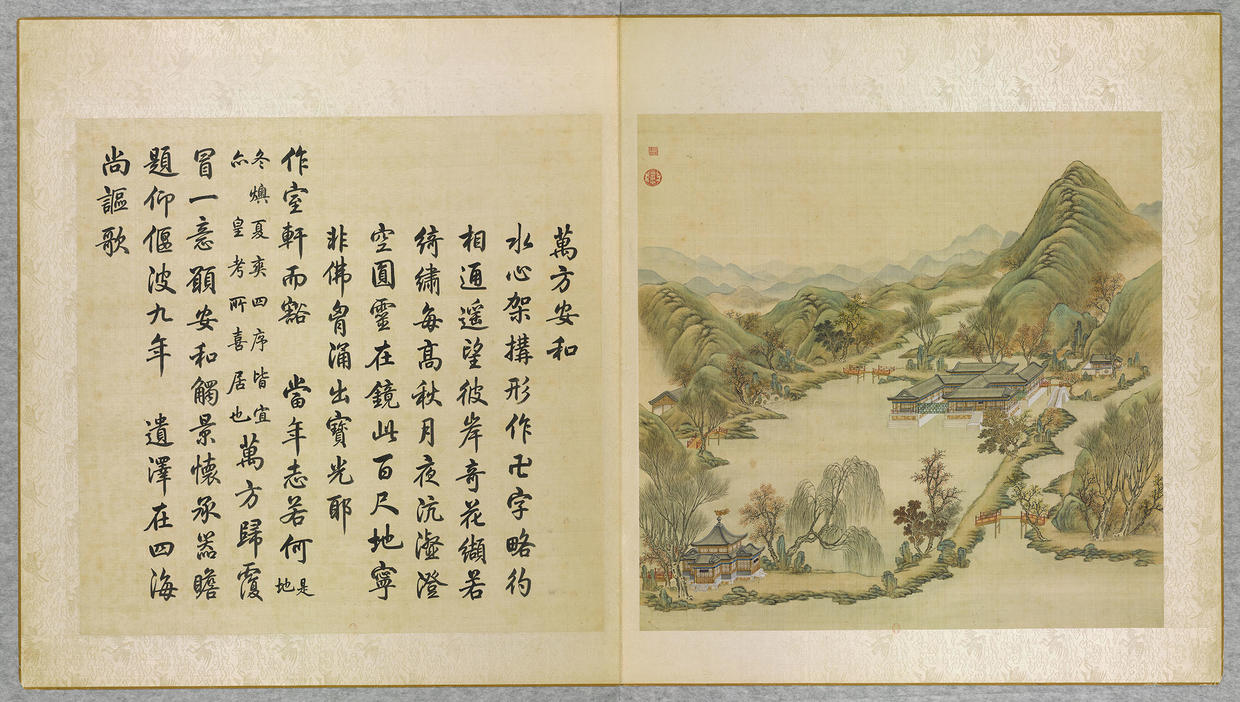 萬方安和
水心架搆形作卍字略彴
相通遙望彼岸奇花纈若
綺繡每髙秋月夜沆瀣澄
空圓靈在鏡此百尺地寧
非佛胷涌出寶光耶
作室軒而豁 當年志若何 是地
冬燠夏爽四序皆宜
亦皇考所喜居也 萬方歸覆
冒一意願安和觸景懷承器瞻
題仰偃波九年 遺澤在四海
尚謳歌